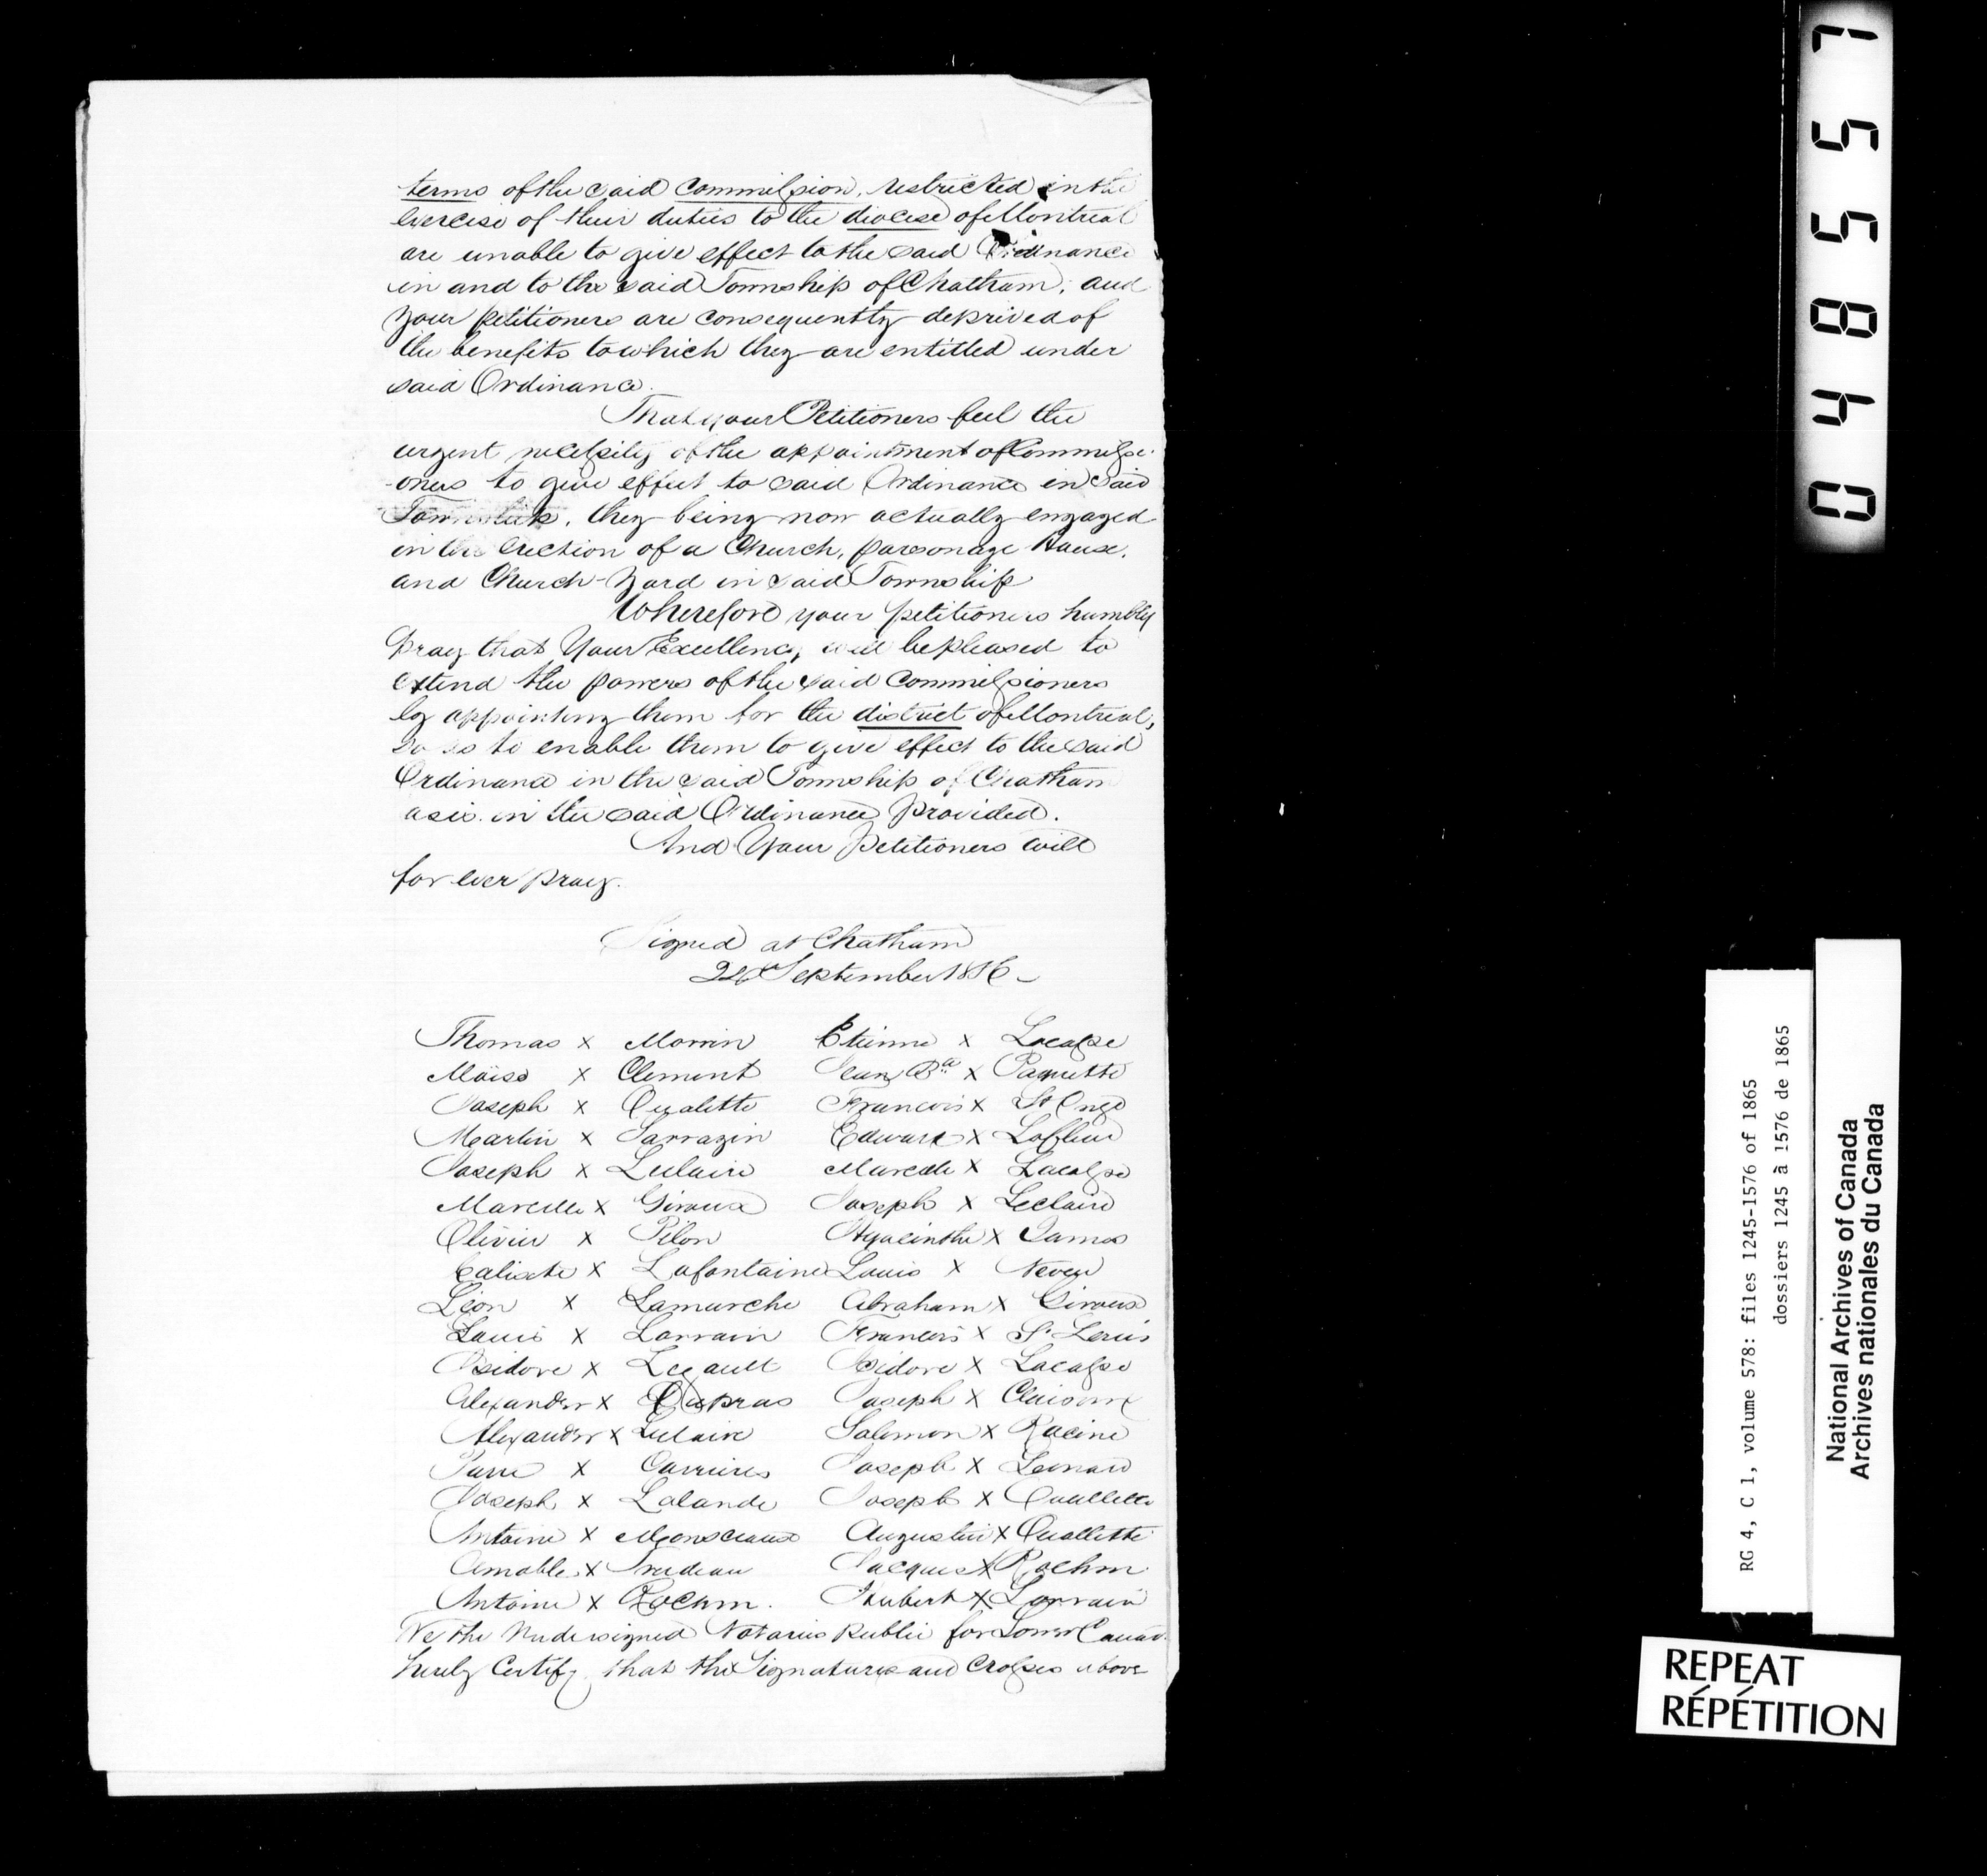 terms of the said Commission, restricted in the
exercise of their duties to the diocese of Montreal
are unable to give effect to the said Ordinance
in and to the said Township of Chatham; and
your petitioners are consequently deprived of
the benefits to which they are entitled under
said Ordinance.
That your Petitioners feel the
urgent necessity of the appointment of Commissi-
-oners to give effect to said Ordinance in said
Township, they being now actually engaged
in the erection of a Church, parsonage House,
and Church-Yard in said Township
Wherefore your petitioners humbly
Pray that Your Excellency will be pleased to
extend the powers of the said Commissioners
by appointing them for the district of Montreal,
so as to enable them to give effect to the said
Ordinance in the said Township of Chatham
as is in the said Ordinance provided.
And Your Petitioners will
for ever pray.
Signed at Chatham
September
Thomas x Morrin Etienne x Lacasse
Moïse x Clement Jean Bte x Paquette
Joseph x Ouealette Francois x St Onge
Martin x Sarrazin Edward x Lafleur
Joseph x Leclaire Marcelle x Lacasse
Marcelle x Giroux Joseph x Leclaire
Olivier x Pilon Hyacinthe x James
Calixte x Lafontaine Louis x Neveu
Léon x Lamarche Abraham x Giroux
Louis x Lorrain Francois x St Louis
Isidore x Legault Isidore x Lacasse
Alexander x Dupras Joseph x
Alexander x Leclaire Salomon x Racine
Pierre x Carrieres Joseph x Leonard
Joseph x Lalande Joseph x Ouellette
Antoine x Monsceaux Augustin x Ouallette
Amable x Trudeau Jacques x Rochon
Antoine x Rochon. Hubert x Lorrain
We the Undersigned Notaries Public for Lower Canada
hereby Certify that the Signatures and Crosses above
048557
RG 4, C 1, volume 578: files 1245-1576 of 1865
dossiers 1245 à 1576 de 1865
National Archives of Canada
Archives nationales du Canada
REPEAT
RÉPÉTITION